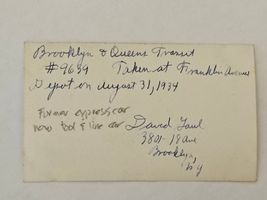 Brooklyn & Queens Transit
#9639 Taken at Franklin Avenue
Depot on August 31, 1934
Former express car
now tool & line car
David
3801-18 ave
Brooklyn,
NY